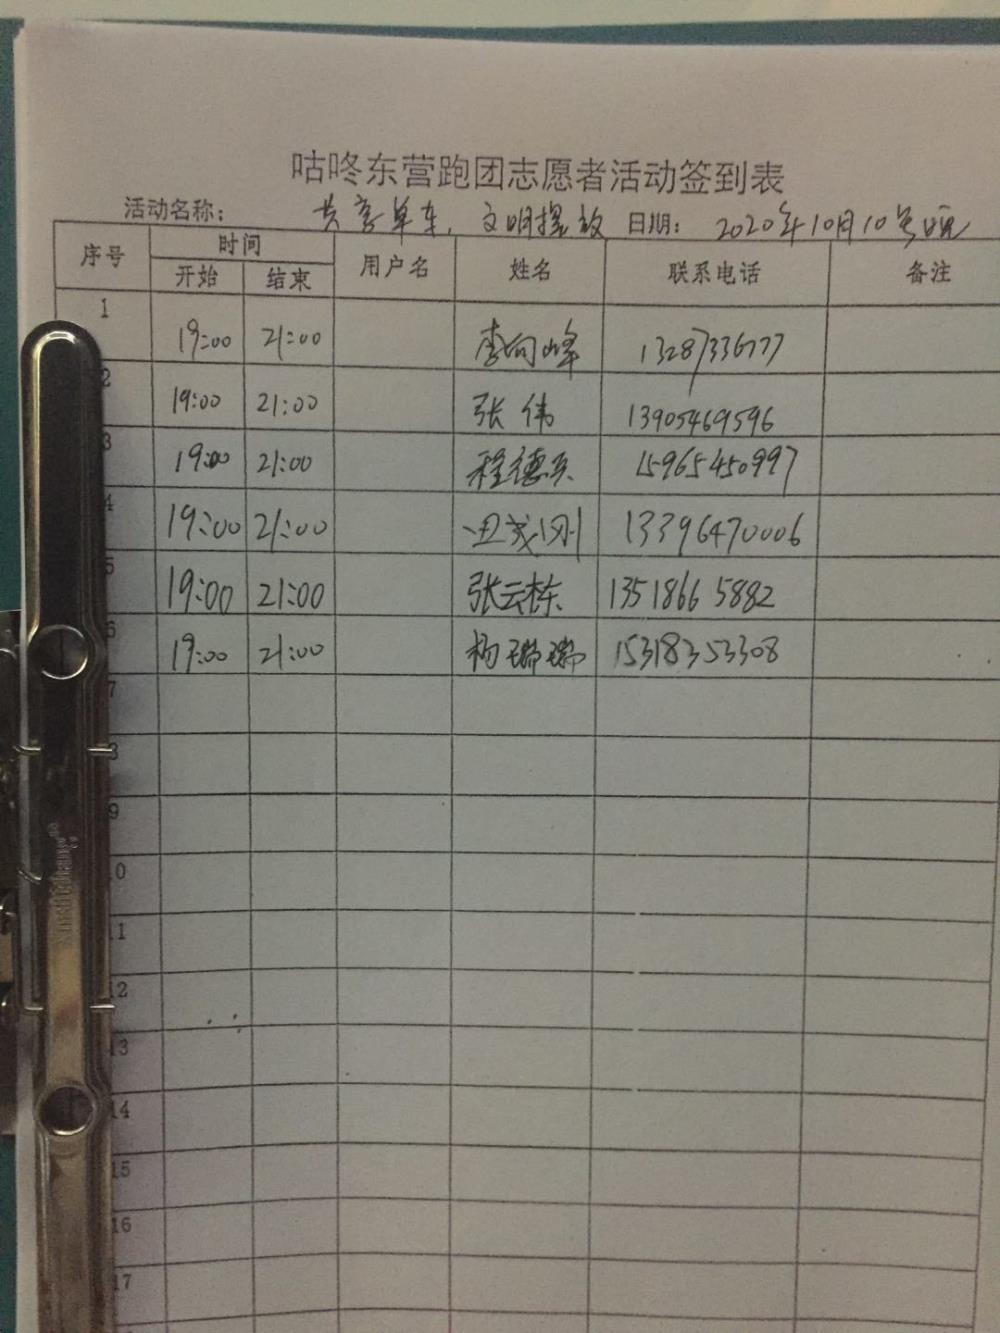 咕咚东营跑团志愿者活动签到表
活动名称： 共享单车，文明摆放 日期： 2020年10月10号晚
序号 时间 用户名 姓名 联系电话 备注
开始 结束
1 19:00 21:00 李向峰 13287336777
2 19:00 21:00 张伟 13905469596
3 19:00 21:00 程德兵 15965450997
4 19:00 21:00 刚 13396470006
5 19:00 21:00 张云栋 13518665882
6 19:00 21:00 杨瑞瑞 15318353308
7
9
0
11
12
13
14
15
16
17